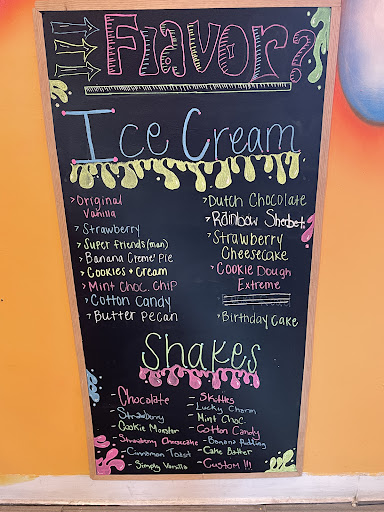 Flavor?
Ice Cream
> Original
Vanilla
> Strawberry
> Super friends (man)
> Banana Creme Pie
> Cookies + Cream
> Mint Choc. Chip
> Cotton Candy
> Butter Pecan
> Dutch Chocolate
> Rainbow Sherbet
> Strawberry
Cheesecake
> Cookie Dough
Extreme
> Birthday Cake
Shakes
- Chocolate
- Strawberry
- Cookie Monster
- Strawberry Cheesecake
- Cinnamon Toast
- Simply Vanilla
- Skittles
- Lucky Charm
- Mint Choc.
- Cotton Candy
- Banana Pudding
- Cake Batter
- Custom !!!